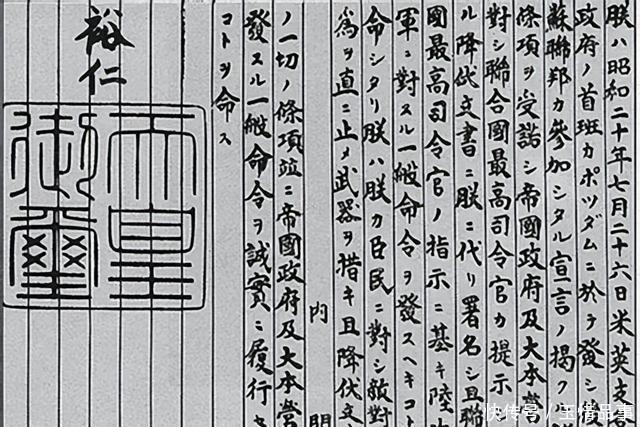 朕ハ昭和二十年七月二十六日米英支各
政府ノ首班カポツダムニ於テ發シ後
蘇聯邦カ參加シタル宣言ノ掲クル諸
條項ヲ受諾シ帝國政府及大本營
對シ聯合國最高司令官カ提示
ル降伏文書ニ朕ニ代リ署名シ且聯
國最高司令官ノ指示ニ基キ陸
軍ニ對スル一般命令ヲ發スヘキコト
命シタリ朕ハ朕カ臣民ニ對シ敵對
爲ヲ直ニ止メ武器ヲ措キ且降伏文
内 閣
ノ一切ノ條項竝ニ帝國政府及大本營
發スル一般命令ヲ誠實ニ履行セ
コトヲ命ス
裕仁
天皇
御璽
快传号/玉情品集